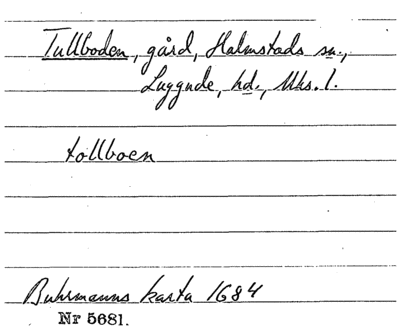 Tullboden, gård, Halmstads sn.,
Luggude, hd., Mhs. l.
tollboen
Buhrmanns karta 1684
Nr 5681.